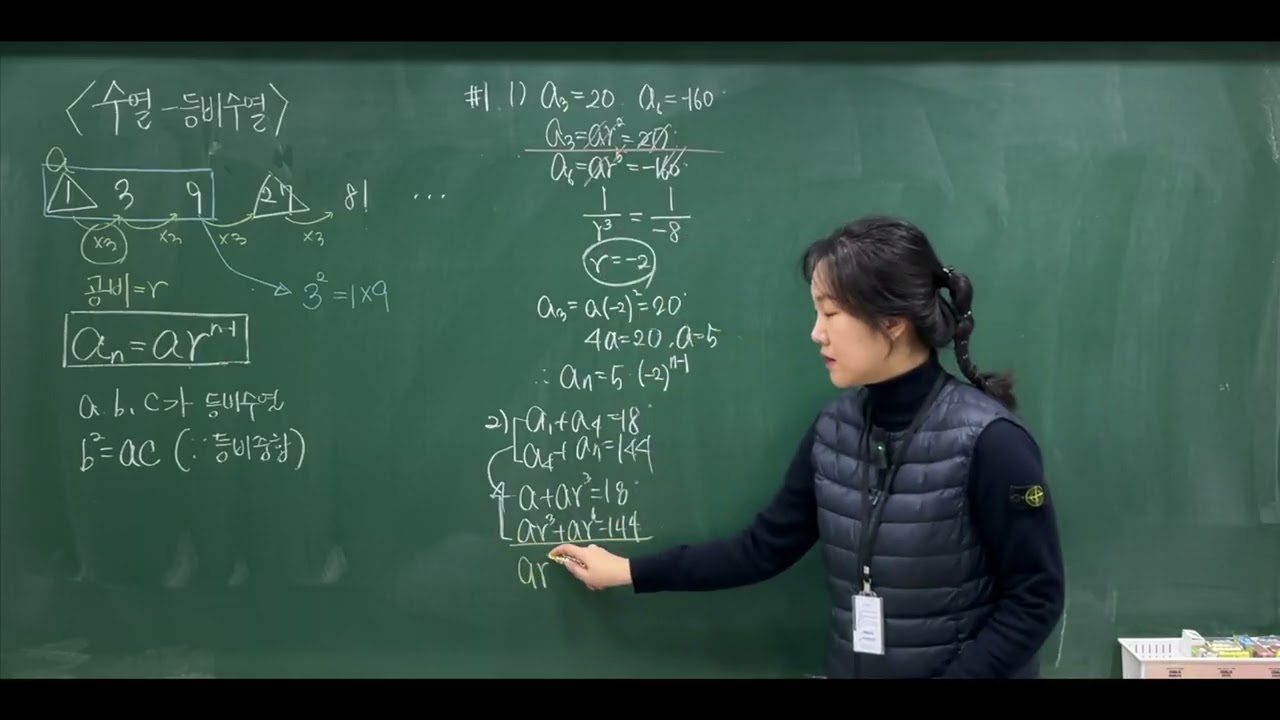 <수열-등비수열>
a
1 3 9 27 81 ...
×3 ×3 ×3 ×3
공비=r
3²=1×9
aₙ=arⁿ⁻¹
a, b, c가 등비수열
b²=ac (∵등비중항)
#1. 1) a₃=20. a₆=-160.
a₃=ar²=20.
a₆=ar⁵=-160.
1/r³ = 1/-8
r=-2
a₃=a(-2)²=20.
4a=20, a=5
∴ aₙ=5·(-2)ⁿ⁻¹
2) a₁+a₄=18.
a₄+a₇=144
a+ar³=18.
ar³+ar⁶=144
ar